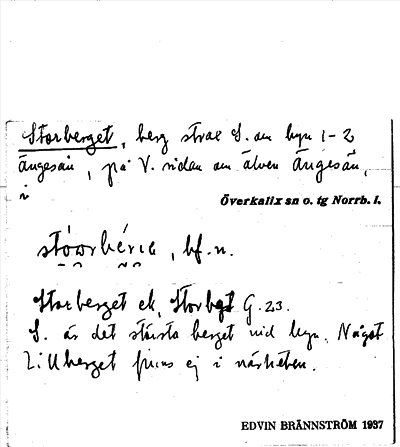 Storberget, berg strax S. om byn 1-2
Ängesån, på V. sidan om älven Ängesån,
i
Överkalix sn o. tg Norrb. l.
stóo̯rbérıc , bf. n.
Storberget ek, Storbgt G. 23.
S. är det största berget vid byn. Något
Lillberget finns ej i närheten.
EDVIN BRÄNNSTRÖM 1937